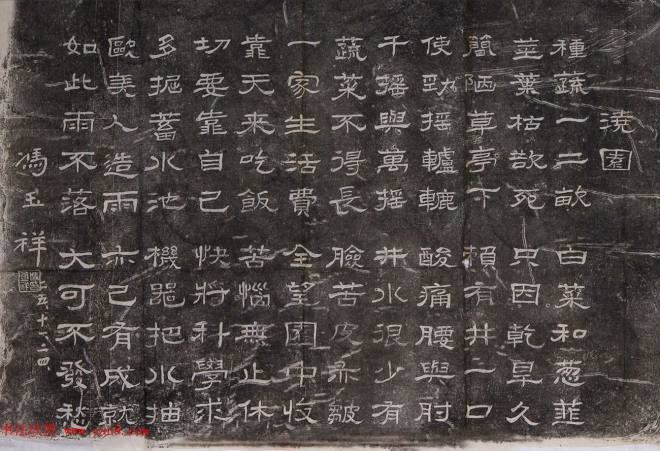 澆園
種蔬一二畝 白菜和葱韮
莖葉枯欲死 只因乾旱久
簡陋草亭下 賴有井一口
使勁搖轆轆 酸痛腰與肘
千搖與萬搖 井水很少有
蔬菜不得長 臉苦皮亦皺
一家生活費 全望園中收
靠天來吃飯 苦惱無止休
切要靠自己 快將科學求
多掘蓄水池 機器把水抽
歐美人造雨 亦已有成就
如此雨不落 大可不發愁
馮玉祥